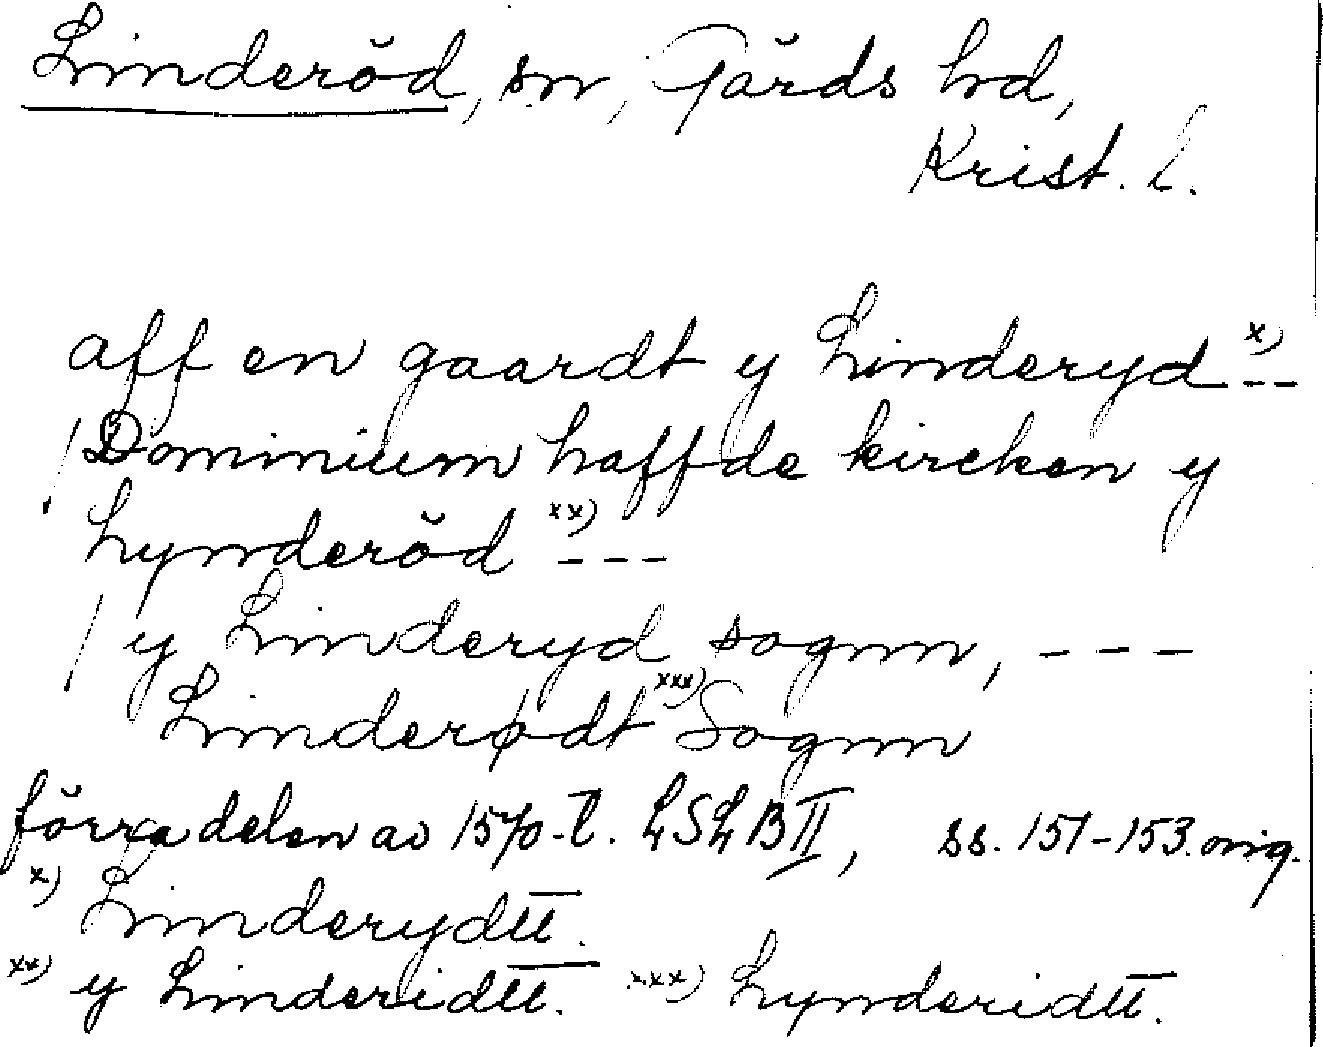 Linderöd, sn, Gärds hd,
Krist. l.
aff en gaardt y Linderyd x) --
/ Dominium haffde kircken y
Lynderöd xx) ---
/ y Linderyd sognn, ---
Linderødt xxx) Sognn
förra delen av 1570-t. LSLB II, ss. 151-153. orig.
x) Linderydtt.
xx) y Linderidtt. xxx) Lynderidtt.